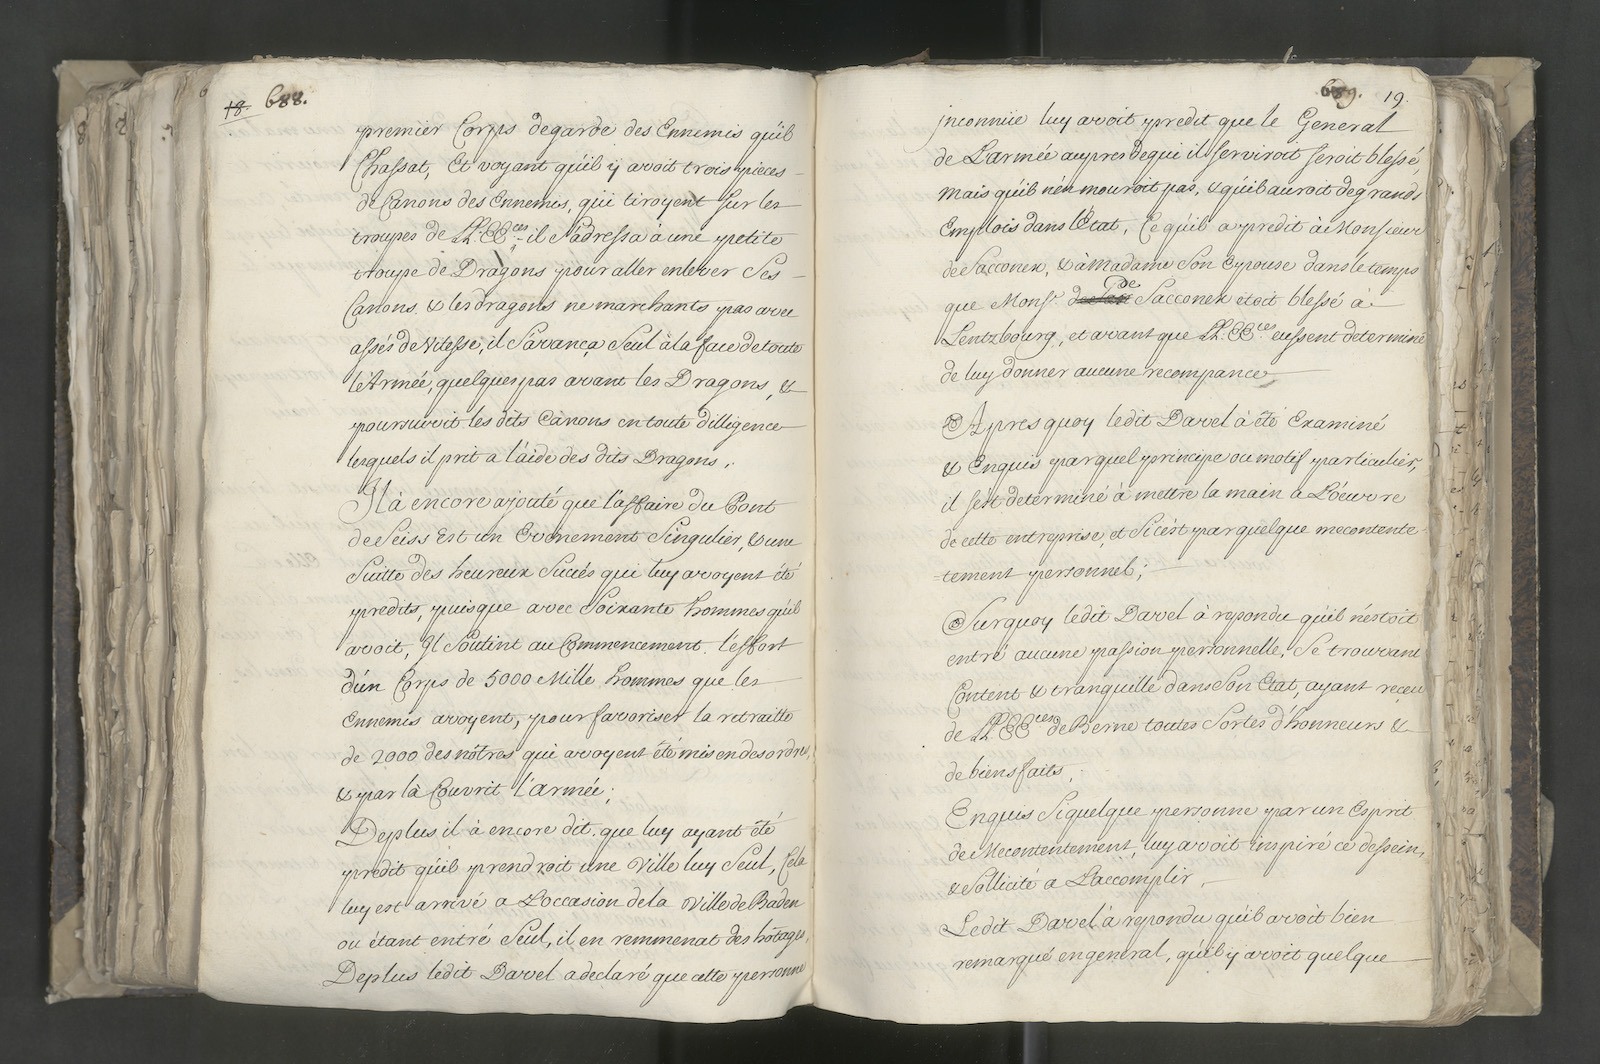 18. 688.
premier Corps degarde des Ennemis qu'il
Chassat, Et voyant qu'il ÿ avoit trois pieces
de Canons des Ennemis, qui tiroyent sur les
troupes de LL.EE.ces il s'adressa à une petite
troupe de Dragons pour aller enlever Ses
Canons & les dragons ne marchants pas avec
assés de Vitesse, il Savança Seul à la face de toute
l'Armée, quelques pas avant les Dragons, &
poursuivit les dits Canons en toute dilligence
lesquels il prit a l'aide des dits Dragons.
Il à encore ajouté que l'affaire du Pont
de Seiss Est un Evenement Singulier, & une
Suitte des heureux Succés qui luy avoyent été
predits, puisque avec Soixante hommes qu'il
avoit, Il Soutint au Commencement l'effort
d'un Corps de 5000 Mille hommes que les
Ennemis avoyent, pour favoriser la retraitte
de 2000 des nôtres qui avoyent été mis en desordre,
& par là Couvrit l'armée;
Deplus il à encore dit que luy ayant été
predit qu'il prendroit une Ville luy Seul, Cela
luy est arrivé a L'occasion de la Ville de Baden
ou étant entré Seul, il en remmenat des hôtages,
Deplus ledit Davel a declaré que cette personne
689. 19.
jnconnüe luy avoit predit que le General
de L'armée aupres de qui il serviroit seroit blessé,
mais qu'il n'en mouroit pas, & qu'il auroit de grands
Emplois dans l'Etat, Ce qu'il a predit à Monsieur
de Sacconex, & à Madame Son Epouse dans le temps
que Monsr. de Sacconex étoit blessé à
Lentzbourg, et avant que LL.EE.ces eussent determiné
de luy donner aucune recompance
Apres quoy ledit Davel à été Examiné
& Enquis par quel principe ou motif particulier,
il s'est determiné à mettre la main a L'oeuvre
de cette entreprise, et Si c'est par quelque mecontente
=tement personnel;
Sur quoy ledit Davel à repondu qu'il n'estoit
entré aucune passion personnelle, Se trouvant
Content & tranquille dans Son Etat, ayant receu
de LL.EE.ces de Berne toutes Sortes d'honneurs &
de biensfaits,
Enquis Si quelque personne par un Esprit
de Mecontentement, luy avoit inspiré ce dessein,
& Sollicité a L'accomplir,
Ledit Davel à repondu qu'il avoit bien
remarqué en general, qu'il y avoit quelque